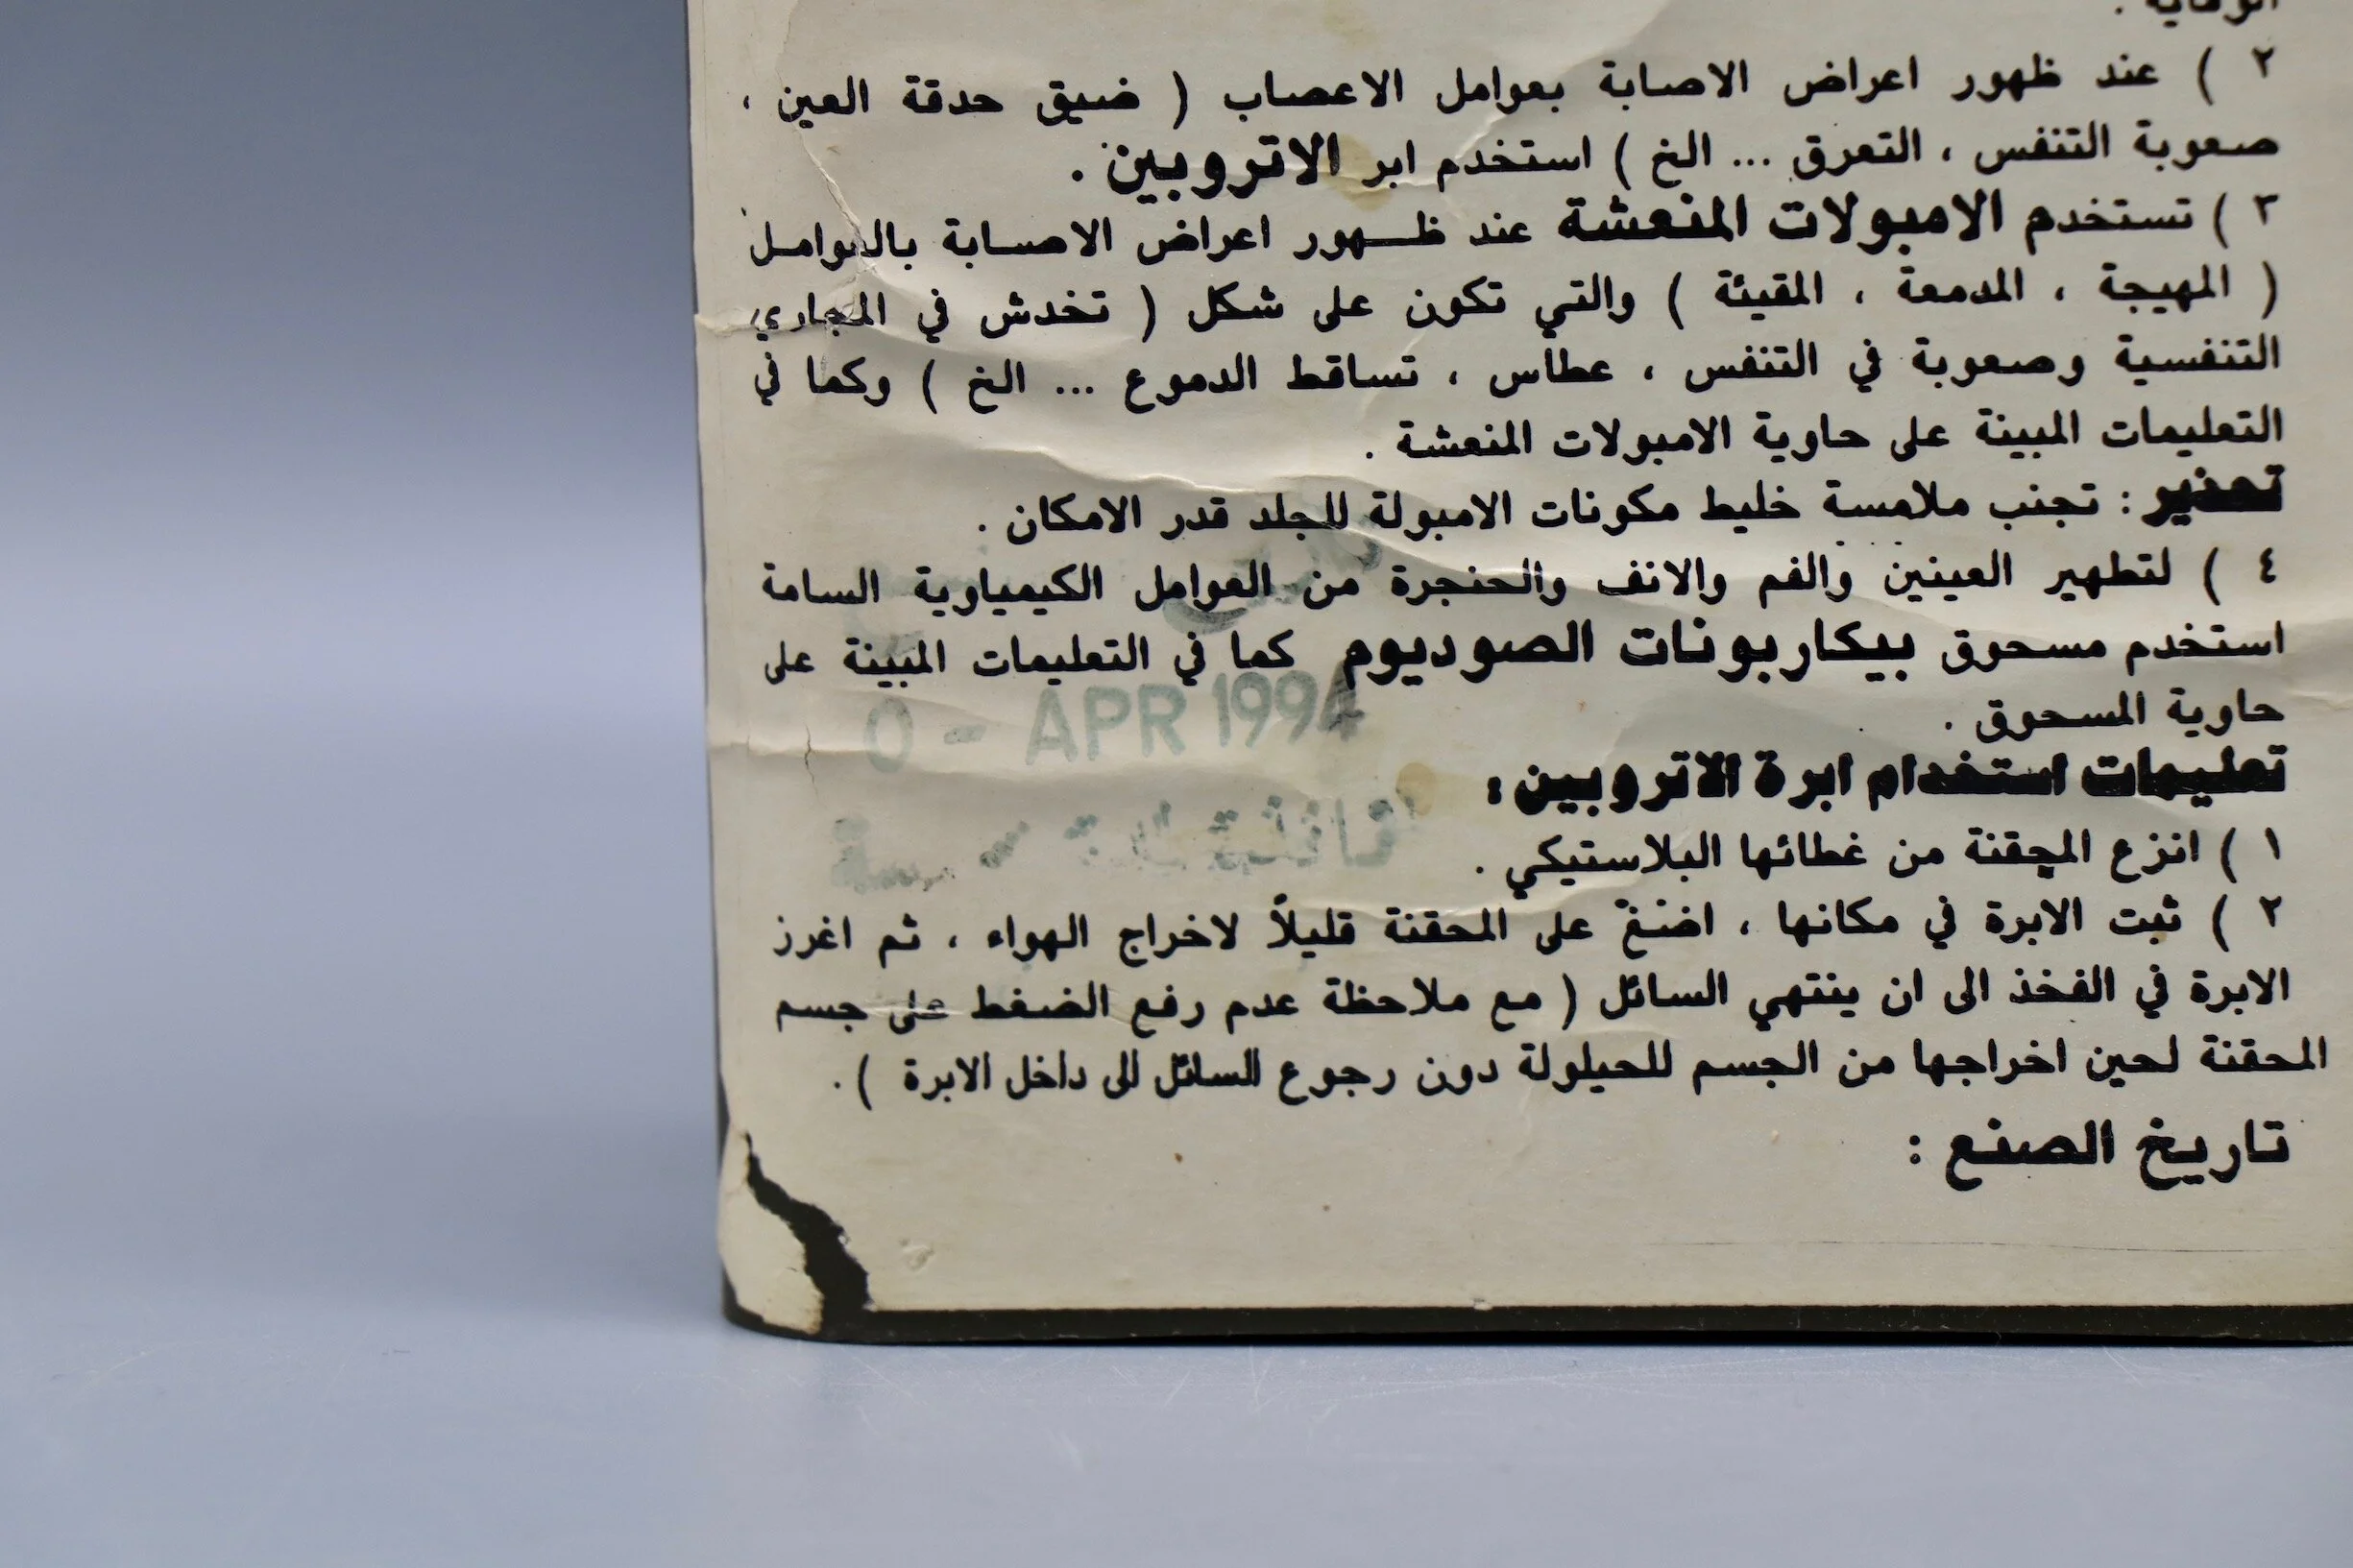 الوقاية .
٢ ) عند ظهور اعراض الاصابة بعوامل الاعصاب ( ضيق حدقة العين ،
صعوبة التنفس ، التعرق ... الخ ) استخدم ابر الاتروبين .
٣ ) تستخدم الامبولات المنعشة عند ظهور اعراض الاصابة بالعوامل
( المهيجة ، المدمعة ، المقيئة ) والتي تكون على شكل ( تخدش في المجاري
التنفسية وصعوبة في التنفس ، عطاس ، تساقط الدموع ... الخ ) وكما في
التعليمات المبينة على حاوية الامبولات المنعشة .
تحذير : تجنب ملامسة خليط مكونات الامبولة للجلد قدر الامكان .
٤ ) لتطهير العينين والفم والانف والحنجرة من العوامل الكيمياوية السامة
استخدم مسحوق بيكاربونات الصوديوم كما في التعليمات المبينة على
حاوية المسحوق .
0 - APR 1994
تعليمات استخدام ابرة الاتروبين :
١ ) انزع المحقنة من غطائها البلاستيكي .
٢ ) ثبت الابرة في مكانها ، على المحقنة قليلاً لاخراج الهواء ، ثم اغرز
الابرة في الفخذ الى ان ينتهي السائل ( مع ملاحظة عدم رفع الضغط على جسم
المحقنة لحين اخراجها من الجسم للحيلولة دون رجوع السائل الى داخل الابرة ) .
تاريخ الصنع :